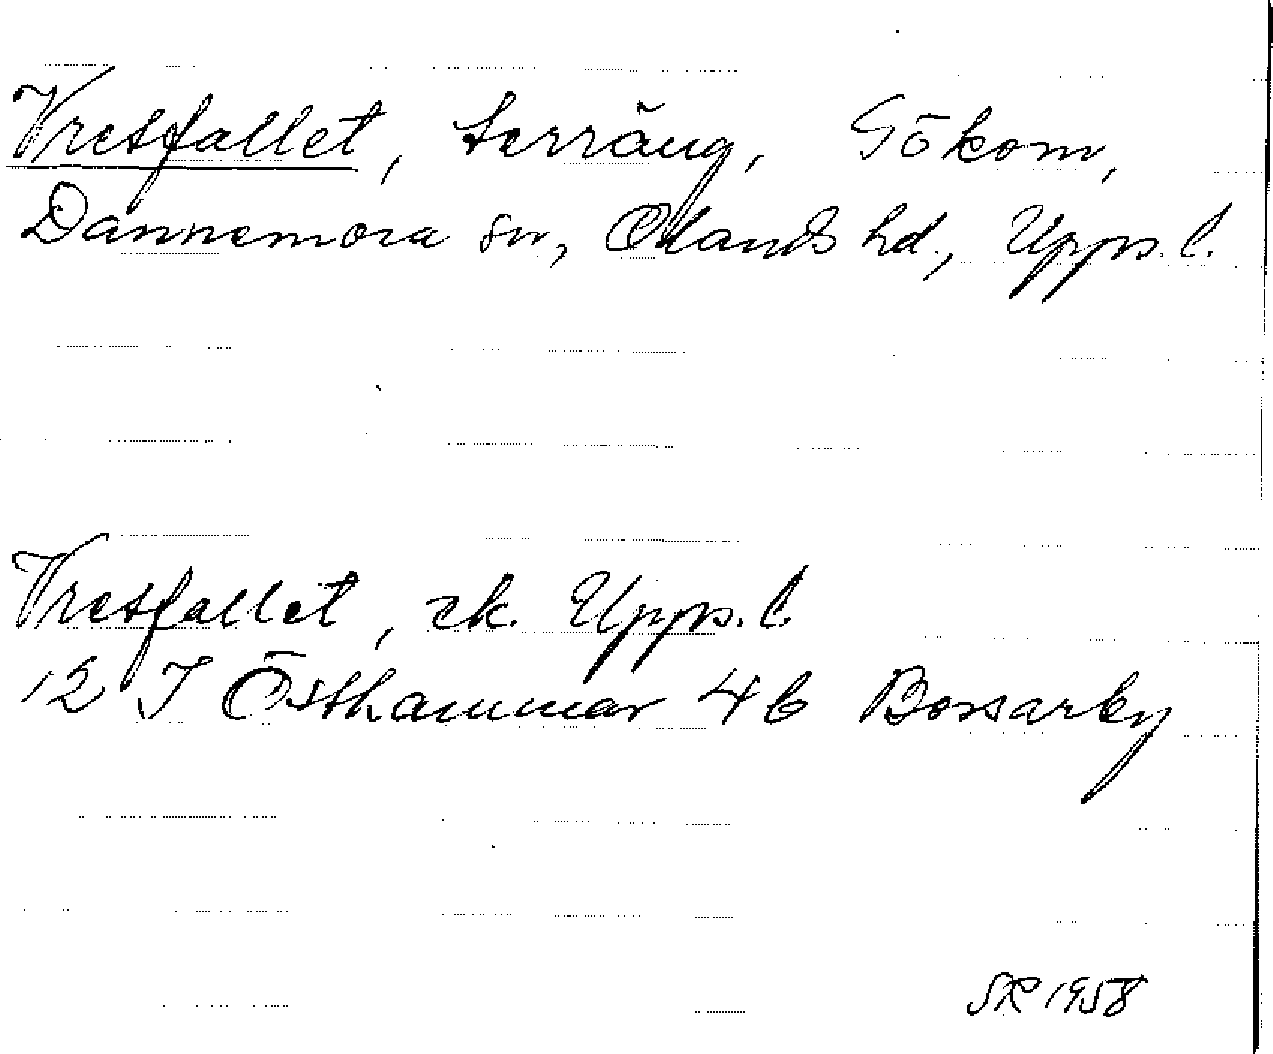 Vretfallet, terräng, Gökom,
Dannemora sn, Olands hd., Upps. l.
Vretfallet, ek. Upps. l.
12 I Östhammar 4 b Bossarby
SR 1958